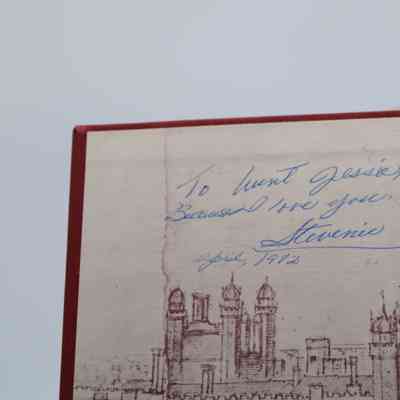 To Aunt Jessie,
Because I love you.
Stevenie
April, 1982